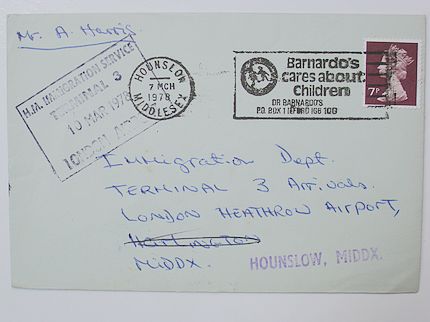 Mr. A. Harris.
H.M. IMMIGRATION SERVICE
TERMINAL 3
10 MAR 1978
LONDON AIRPORT
HOUNSLOW
7 MCH
1978
MIDDLESEX
Barnardo's
cares about
Children
DR BARNARDO'S
P.O. BOX 1 ILFORD IG6 1QG
7P
Immigration Dept.
TERMINAL 3 Arrivals.
LONDON HEATHROW AIRPORT,
HARLINGTON
MIDDX.
HOUNSLOW, MIDDX.